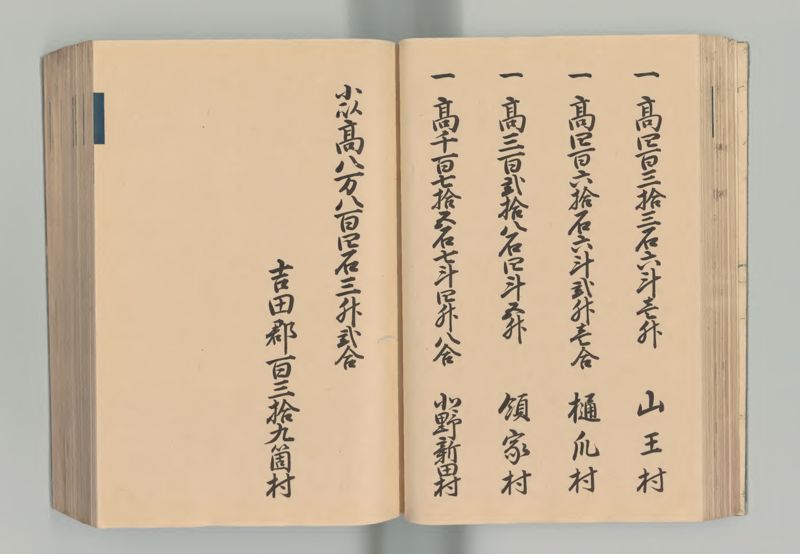 一 高四百三拾三石六斗壱升 山王村
一 高四百六拾石六斗弐升壱合 樋爪村
一 高三百弐拾八石四斗五升 領家村
一 高千百七拾五石七斗四升八合 北野新田村
小以高八万八百四石三升弐合
吉田郡百三拾九箇村